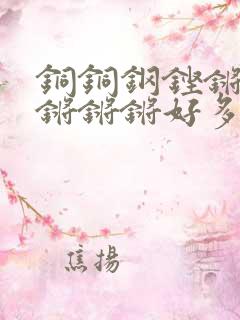 銅銅鋼鏗鏘
鏘鏘鏘好多
焦揚